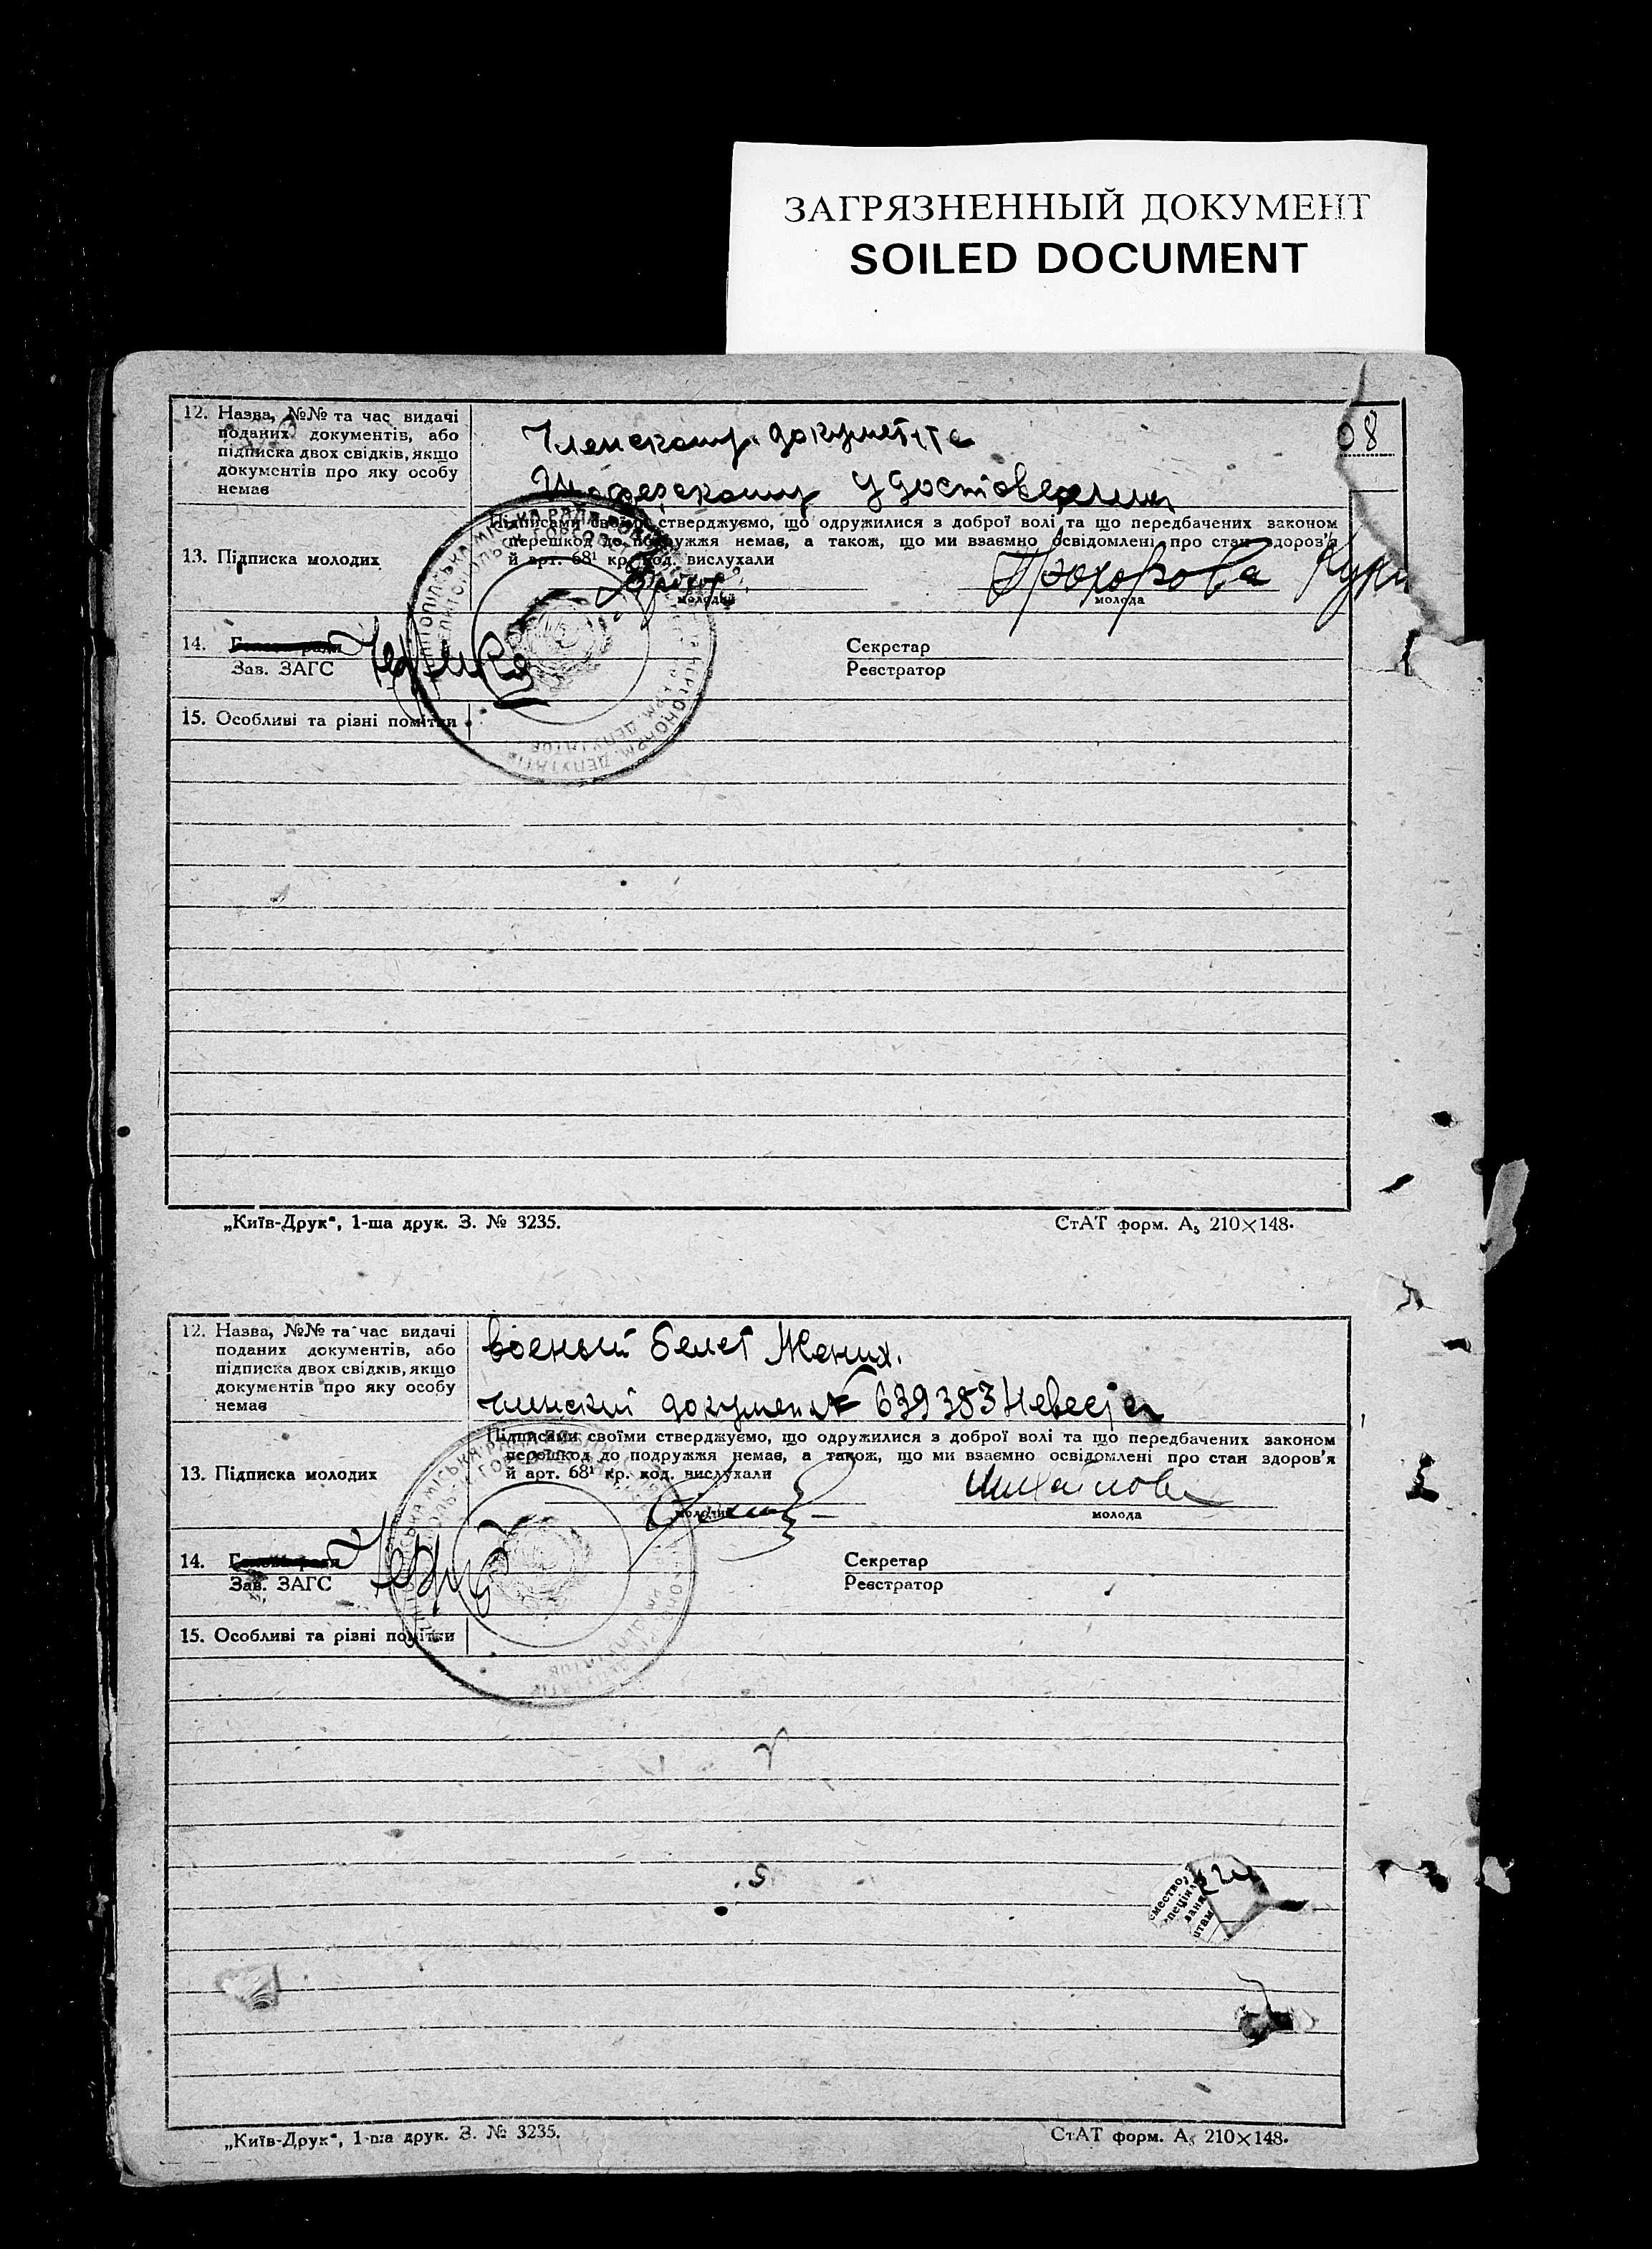 ЗАГРЯЗНЕННЫЙ ДОКУМЕНТ
SOILED DOCUMENT
08
12. Назва, №№ та час видачі
поданих документів, або
підписка двох свідків, якщо
документів про яку особу
немає
удостоверения
Підписами своїми стверджуємо, що одружилися з доброї волі та що передбачених законом
перешкод до подружжя немає, а також, що ми взаємно освідомлені про стан здоров'я
й арт. 68¹ кр. код. вислухали
13. Підписка молодих
Прохорова
молодий
молода
14.
Зав. ЗАГС
Секретар
Реєстратор
15. Особливі та різні помітки
„Київ-Друк“, 1-ша друк. З. № 3235.
СтАТ форм. А₅ 210×148.
12. Назва, №№ та час видачі
поданих документів, або
підписка двох свідків, якщо
документів про яку особу
немає
военый белет Жених.
документ 639383 Невеста
Підписами своїми стверджуємо, що одружилися з доброї волі та що передбачених законом
перешкод до подружжя немає, а також, що ми взаємно освідомлені про стан здоров'я
й арт. 68¹ кр. код. вислухали
13. Підписка молодих
Михайлова
молодий
молода
14.
Зав. ЗАГС
Секретар
Реєстратор
15. Особливі та різні помітки
„Київ-Друк“, 1-ша друк. З. № 3235.
СтАТ форм. А₅ 210×148.